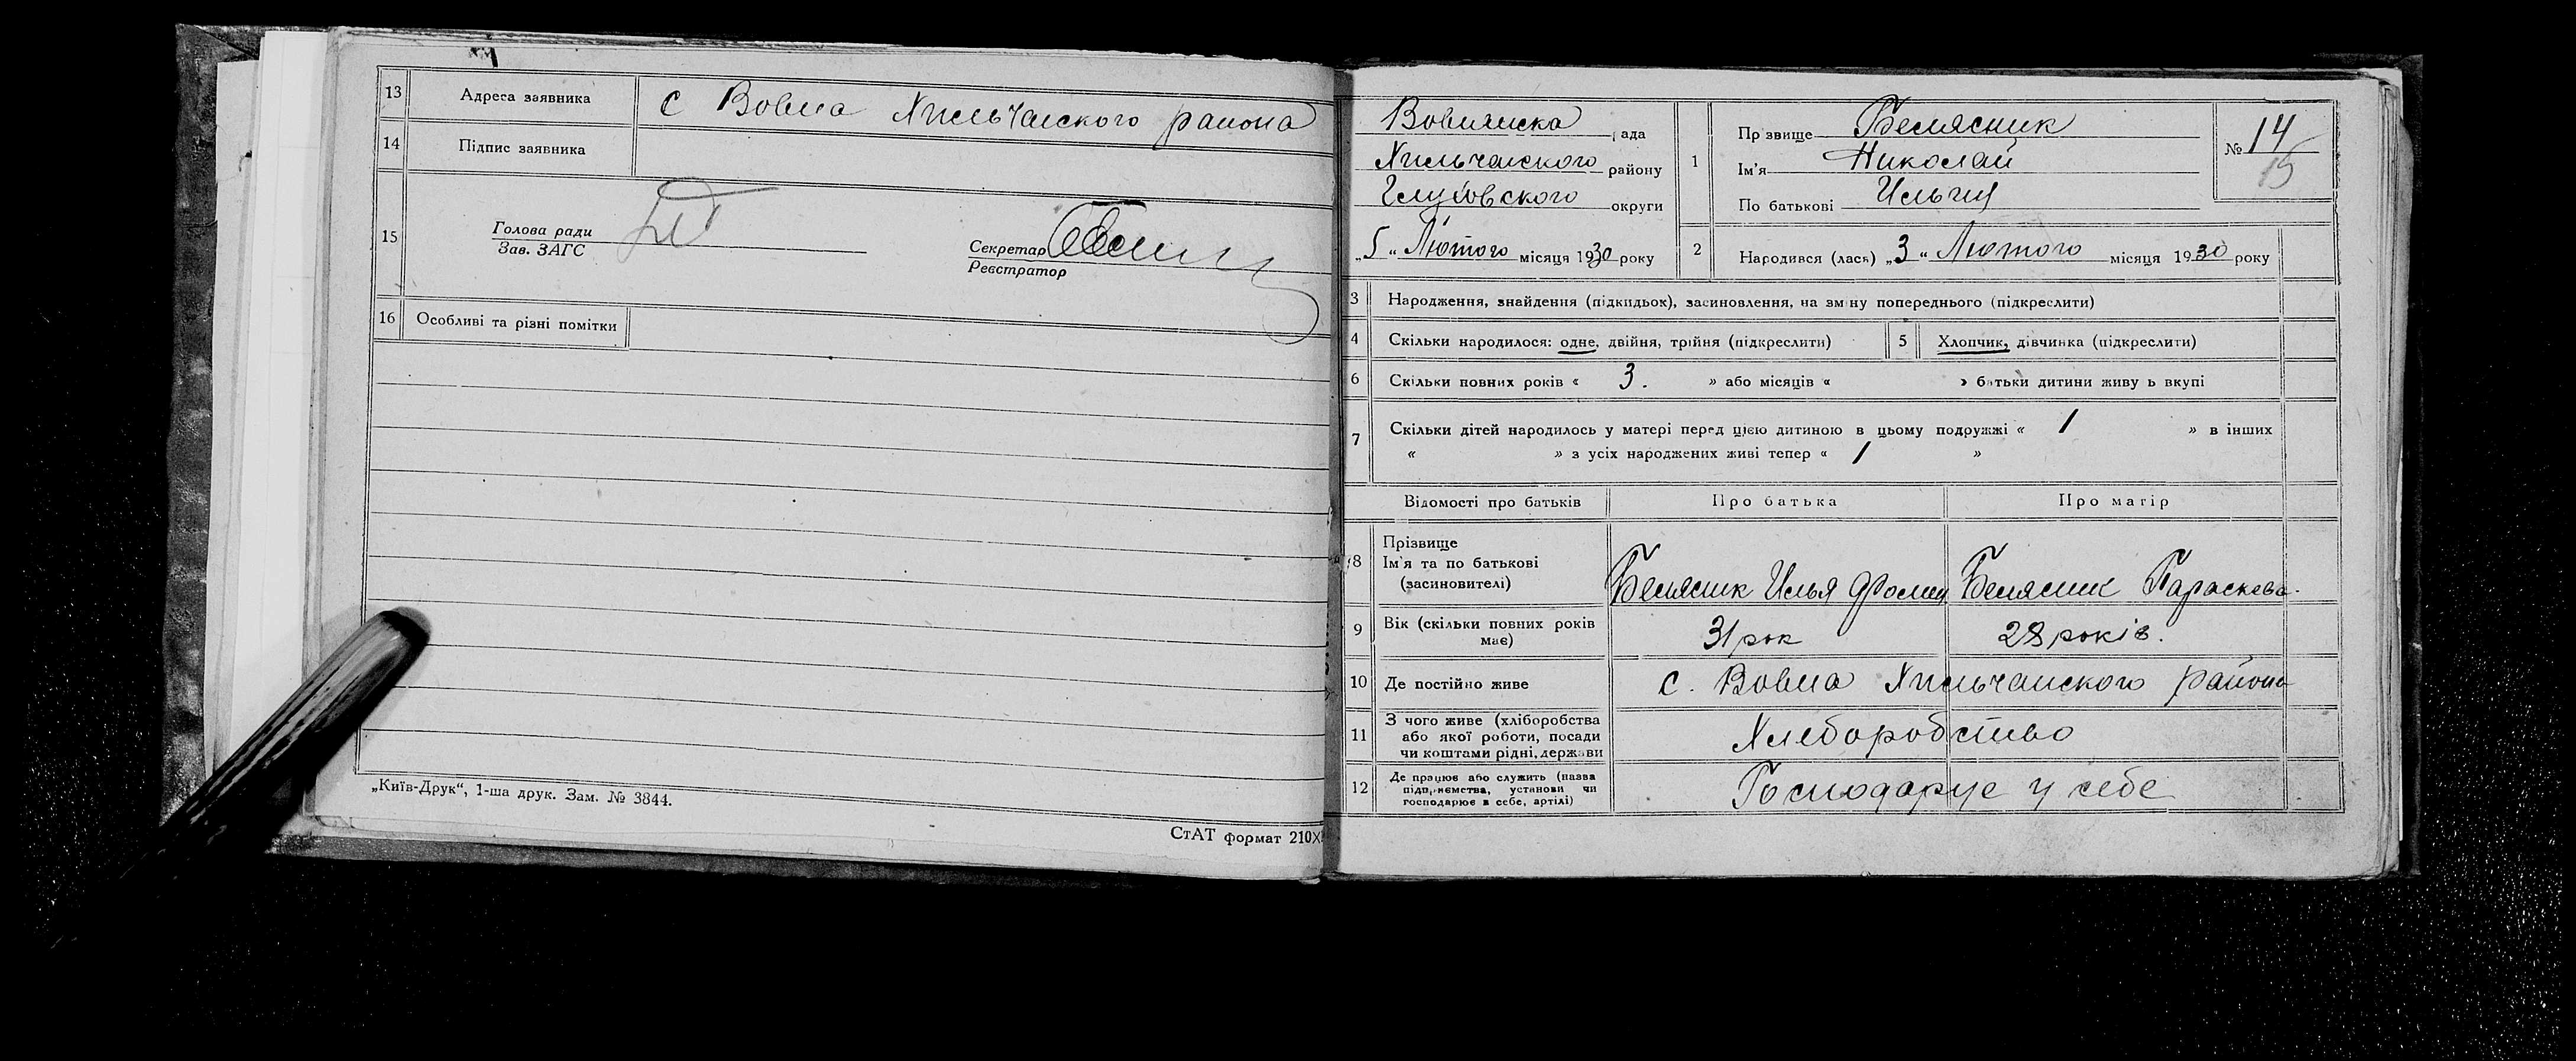 13 Адреса заявника с Вовна Хильчанского района
14 Підпис заявника
15 Голова ради
Зав. ЗАГС
Секретар
Реєстратор
16 Особливі та різні помітки
„Київ-Друк“, 1-ша друк. Зам. № 3844.
СтАТ формат 210X
Вовнянска рада
Хильчанского району
Глуховского округи
„5“ Лютого місяця 1930 року
1 Прізвище Белясник
Ім'я Николай
По батькові Ильич
№ 14
15
2 Народився (лась) „3“ Лютого місяця 1930 року
3 Народження, знайдення (підкидьок), засиновлення, на зміну попереднього (підкреслити)
4 Скільки народилося: одне, двійня, трійня (підкреслити) 5 Хлопчик, дівчинка (підкреслити)
6 Скільки повних років « 3. » або місяців « » батьки дитини живуть вкупі
7 Скільки дітей народилось у матері перед цією дитиною в цьому подружжі « 1 » в інших
« » з усіх народжених живі тепер « 1 »
Відомості про батьків Про батька Про матір
8 Прізвище
Ім'я та по батькові
(засиновителі)
Белясник Илья Фомич Белясник Параскева
9 Вік (скільки повних років має) 31 рок 28 років.
10 Де постійно живе с. Вовна Хильчанского района
11 З чого живе (хліборобства
або якої роботи, посади
чи коштами рідні, держави
Хлеборобство
12 Де працює або служить (назва
підприємства, установи чи
господарює в себе, артілі)
Господарує у себе